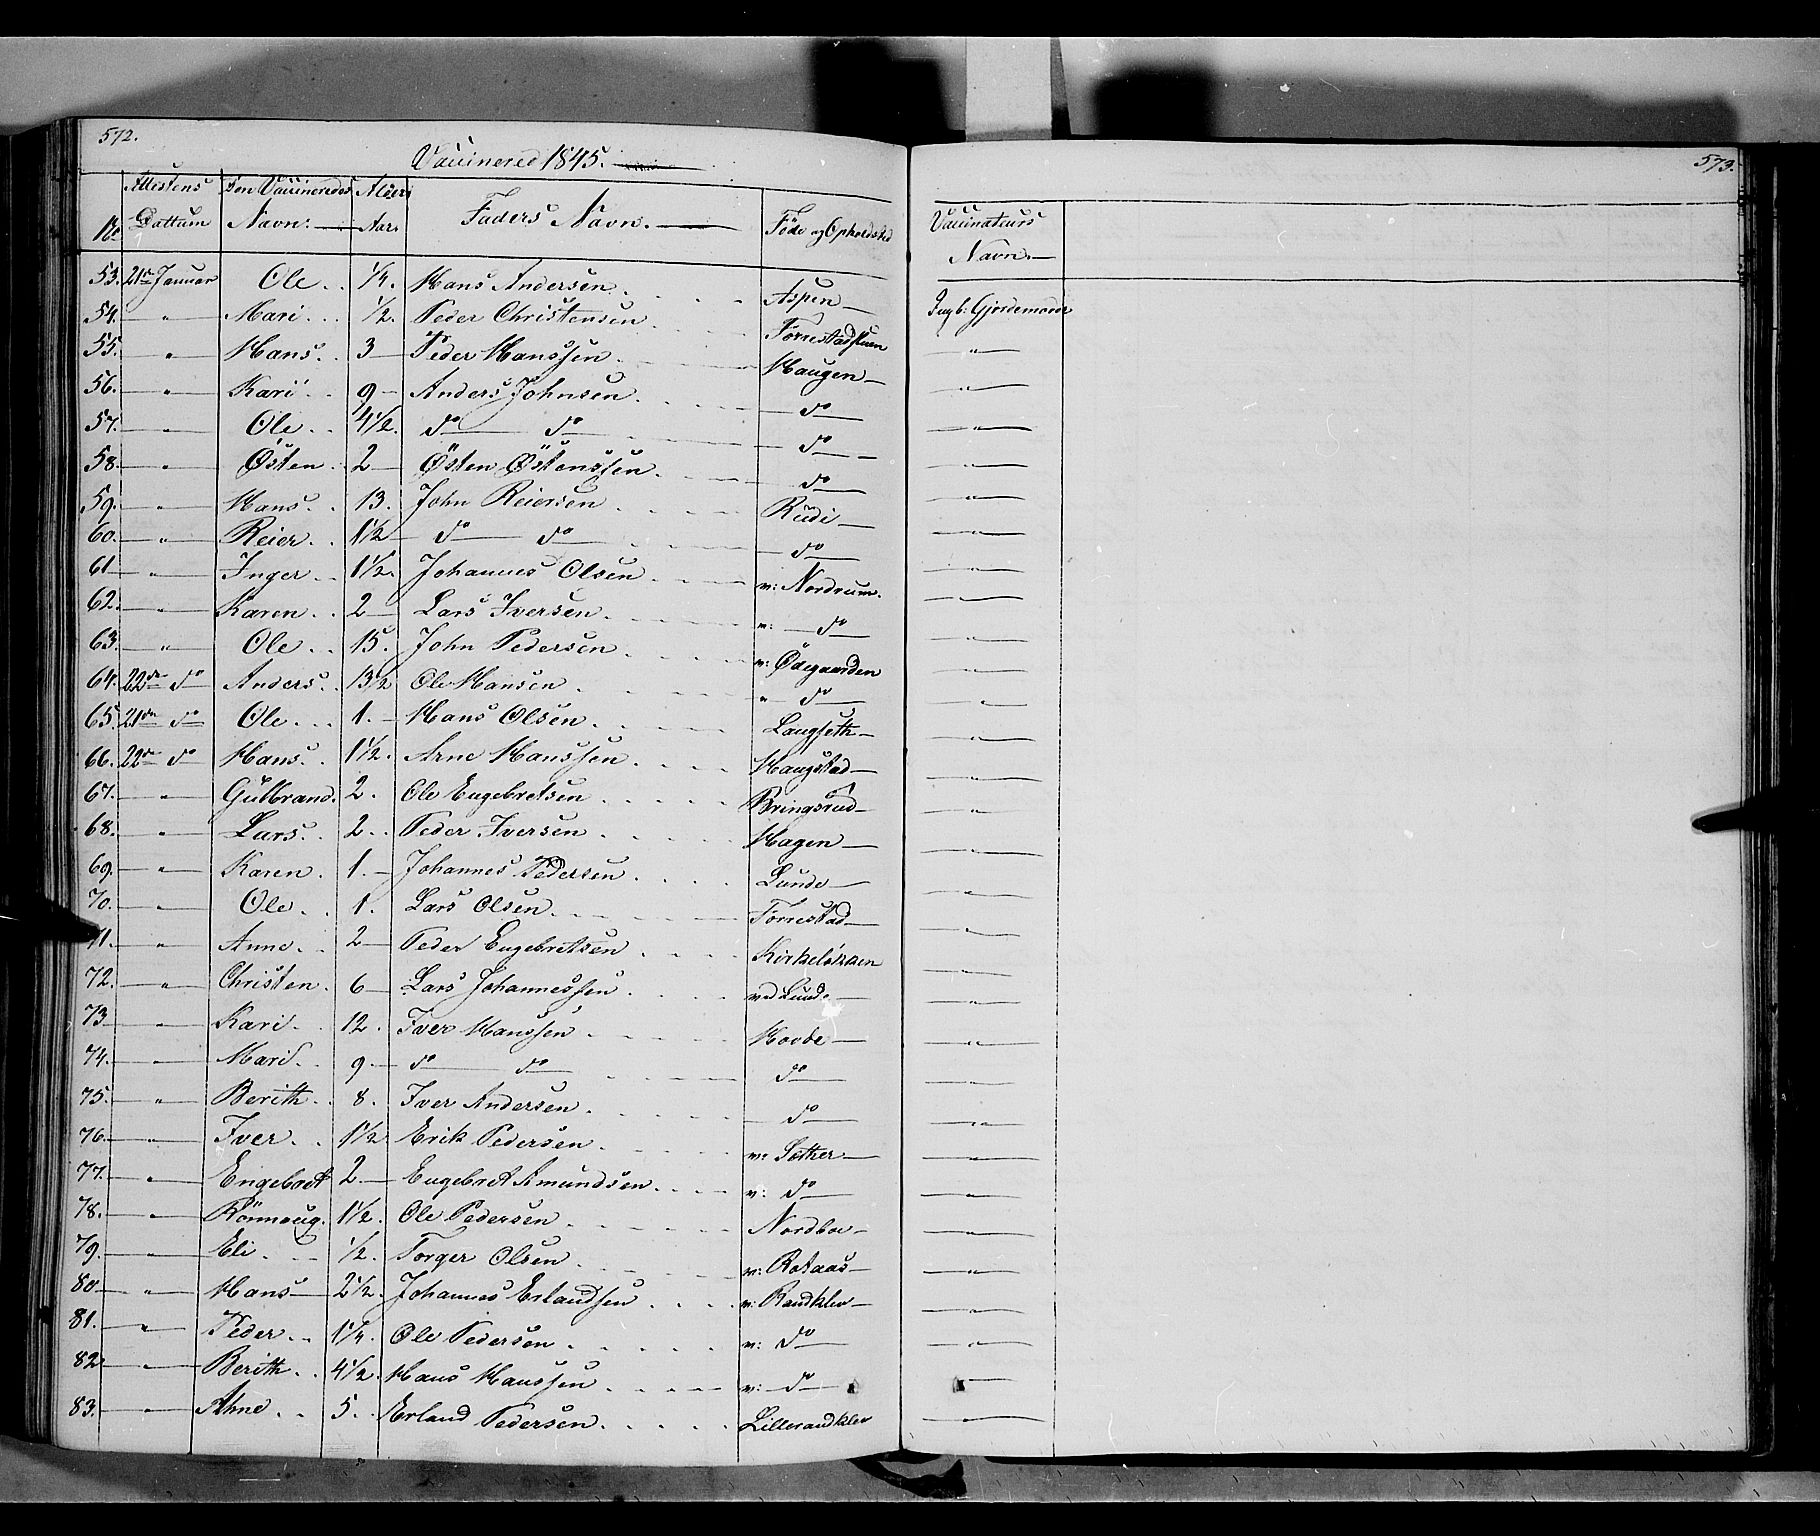 572.
573.
Vaccinered 1845.
No Attestens Dattum | Den Vaccineredes Navn. | Alder Aar. | Faders Navn. | Føde og Opholdsted | Vaccinateurs Navn.
53. 21de Januar Ole 1/4. Hans Andersen. Aspen Ingb: Gjordemoder
54. " Mari 1/2. Peder Christensen Forrestadstuen "
55. " Hans. 3 Peder Hanssen. Haugen "
56. " Kari 9 Anders Johnsen. do "
57. " Ole 4 1/2. do do do "
58. " Østen 2 Østen Østenssen. do "
59. " Hans. 13. John Reiersen Rudi "
60. " Reier. 1 1/2 do do do "
61 " Inger 1 1/2. Johannes Olsen v: Nordrum. "
62. " Karen 2 Lars Iversen v: do "
63. " Ole 15. John Pedersen v: Ødegaarden "
64. 22de do Anders. 13 1/2 Ole Hansen " do "
65. 21de do Ole 1. Hans Olsen. Langseth "
66. 22de do Hans. 1 1/2. Arne Hanssen Haugstad "
67. " Gulbrand. 2. Ole Engebretsen Bringsrud "
68. " Lars. 2. Peder Iversen Hagen "
69. " Karen. 1. Johannes Pedersen Lunde "
70. " Ole 1. Lars Olsen Forrestad "
71. " Anne 2 Peder Engebretsen Kirkeløkken "
72. " Christen. 6 Lars Johannessen ved Lunde "
73 " Kari 12. Iver Hanssen Hovde "
74. " Mari. 9 do do do "
75. " Berith. 8. Iver Andersen. do "
76. " Iver. 1 1/2 Erik Pedersen v: Sother "
77. " Engebret 2 Engebret Amundsen v: do "
78. " Rönnoug. 1 1/2. Ole Pedersen Nordboe "
79. " Eli 1/2. Torger Olsen v: Rotaas "
80 " Hans 2 1/2. Johannes Erlandsen v: Randklev "
81. " Peder 1 1/4. Ole Pedersen v: do "
82 " Berith 4 1/2. Hans Hanssen v: do "
83. " Ahne 5. Erland Pedersen Lillerandklev "